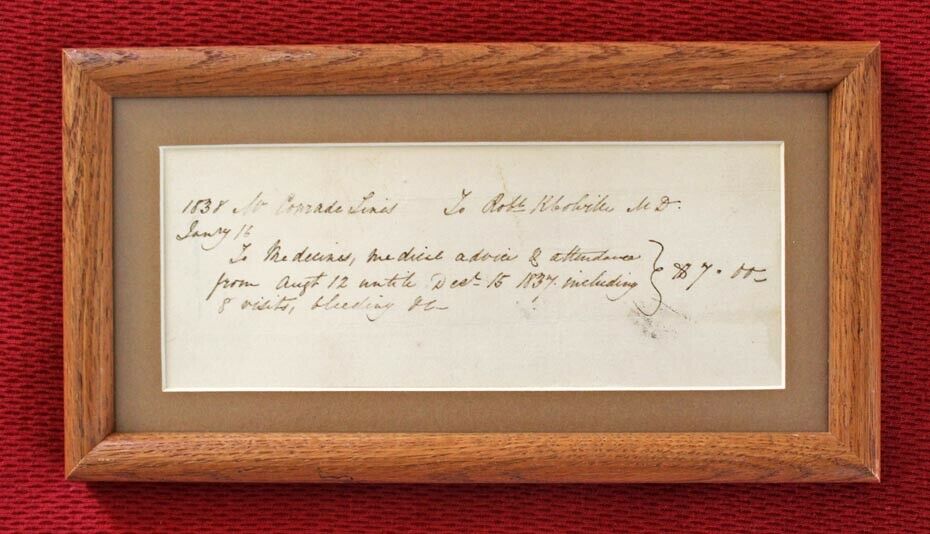 1838 Mr Conrade Lines To Robt. M D.
Janry 16
To Medicines, medical advice & attendance
from Augt 12 until Decr. 15 1837. including
8 visits, bleeding &c
$7.00